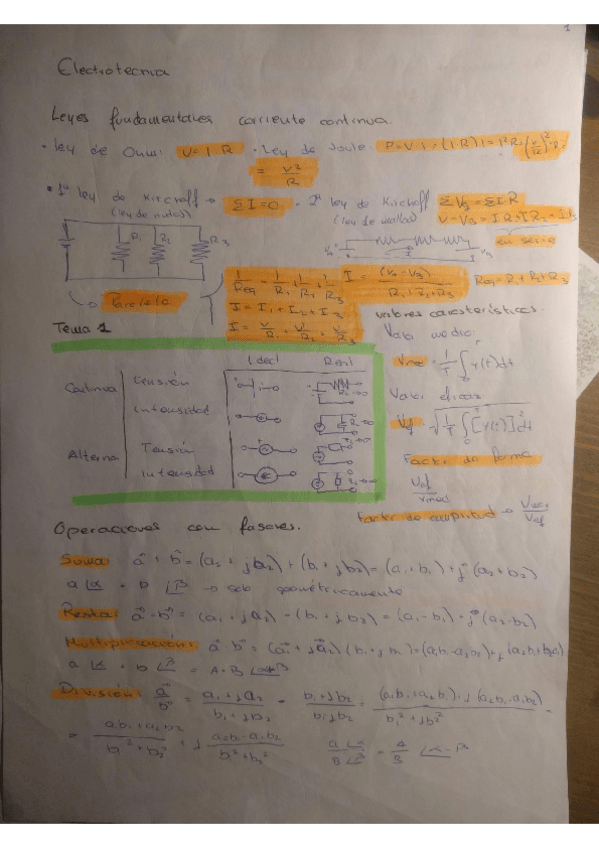 1
Electrotecnia
Leyes fundamentales corriente continua.
• Ley de Ohm: V = I·R • Ley de Joule: P = V·I = (I·R)·I = I²·R = (V/R)²·R
= V²/R
• 1ª Ley de Kirchoff → ΣI=0 • 2ª Ley de Kirchoff ΣVg = ΣI·R
(ley de nudos) (ley de mallas)
en serie
R1 R2 R3
Paralelo
1/Req = 1/R1 + 1/R2 + 1/R3
I = (VA - VB)/(R1+R2+R3) Req = R1+R2+R3
I = I1 + I2 + I3
I = V/R1 + V/R2 + V/R3
Tema 1
valores característicos.
Valor medio:
Vmed = 1/T ∫ v(t)dt
Valor eficaz
Vef = √(1/T ∫ [v(t)]² dt)
Factor de forma
Vef/Vmed
Factor de amplitud → Vmax/Vef
Ideal Real
Continua Tensión
Intensidad
Alterna Tensión
Intensidad
Operaciones con fasores.
Suma: a + b = (a1 + ja2) + (b1 + jb2) = (a1 + b1) + j (a2 + b2)
a ∠α + b ∠β → solo geométricamente
Resta: a - b = (a1 + ja2) - (b1 + jb2) = (a1 - b1) + j (a2 - b2)
Multiplicación: a · b = (a1 + ja2)(b1 + jb2) = (a1b1 - a2b2) + j
a ∠α · b ∠β = A·B ∠α+β
División: a/b = (a1 + ja2)/(b1 + jb2)
a∠α / B∠β = A/B ∠α-β